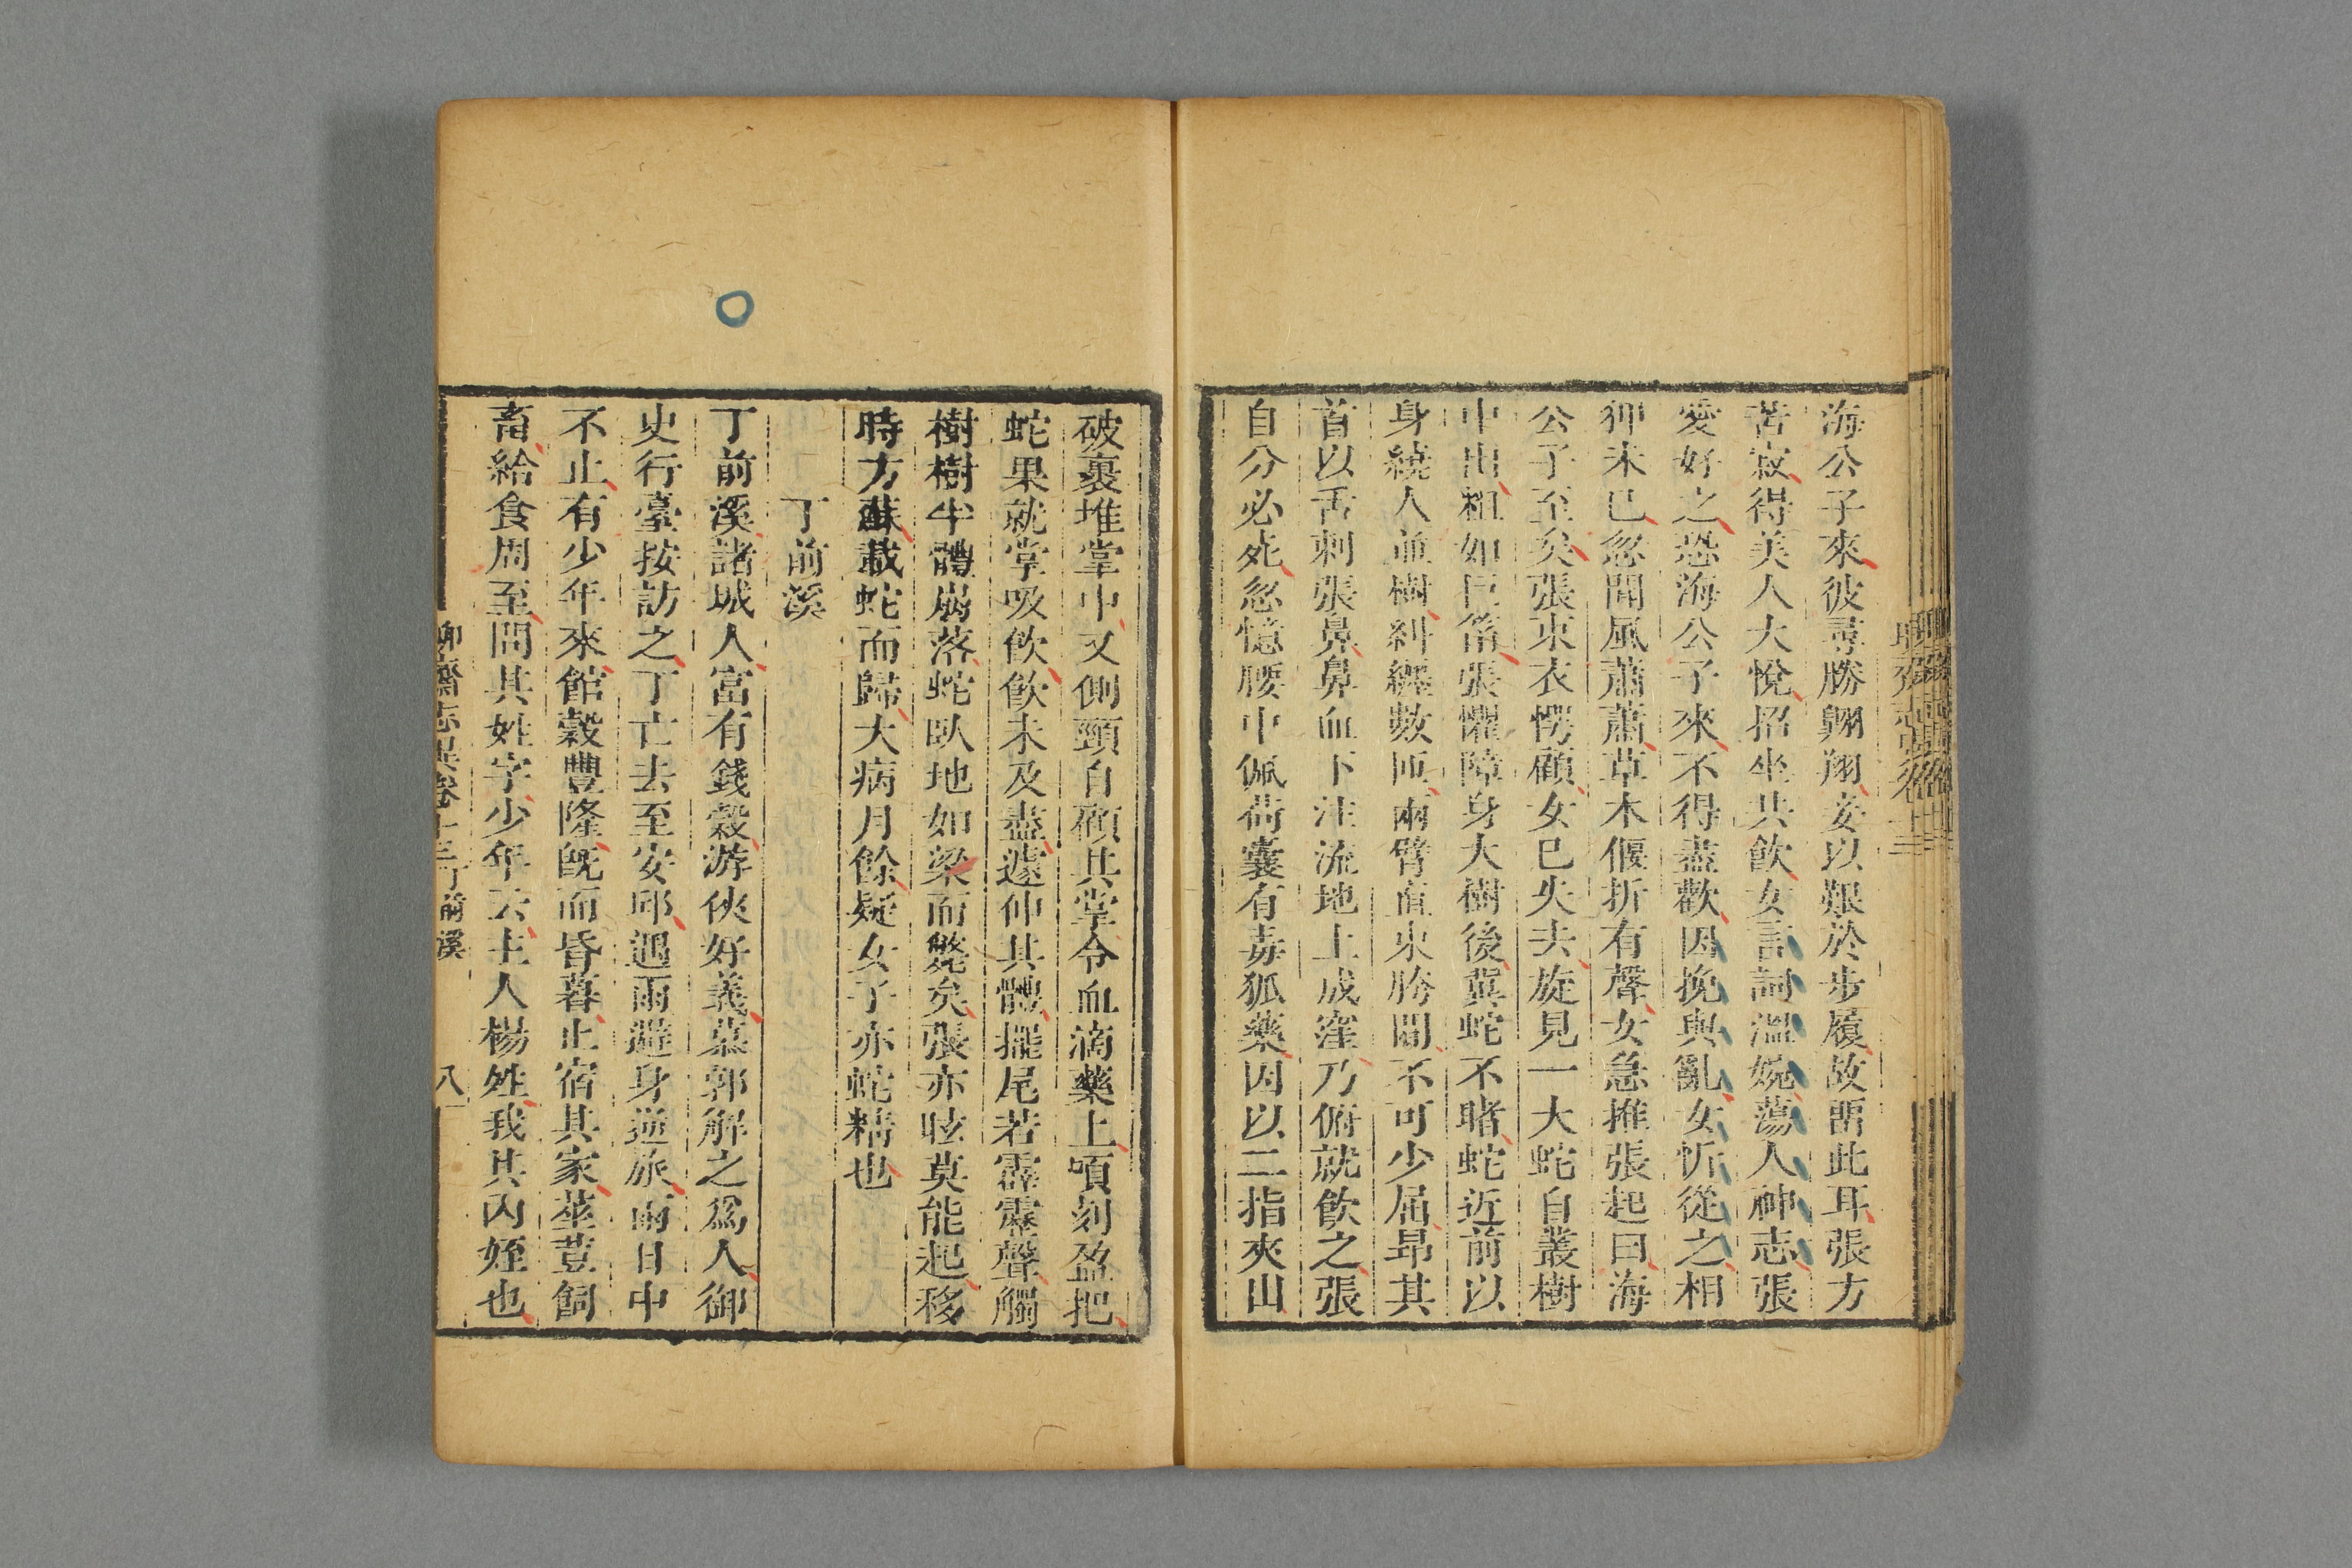 海公子來彼尋勝翱翔妾以艱於步履故畱此耳張方
苦寂得美人大悅招坐共飲女言詞溫婉蕩人神志張
愛好之恐海公子來不得盡歡因挽與亂女忻從之相
狎未已忽聞風蕭蕭草木偃折有聲女急推張起曰海
公子至矣張束衣愕顧女已失去旋見一大蛇自叢樹
中出粗如巨筩張懼障身大樹後冀蛇不睹蛇近前以
身繞人並樹糾纏數匝兩臂直束胯間不可少屈昂其
首以舌刺張鼻鼻血下注流地上成窪乃俯就飲之張
自分必死忽憶腰中佩荷囊有毒狐藥因以二指夾出
破裹堆掌中又側頸自顧其掌令血滴藥上頃刻盈把
蛇果就掌吸飲飲未及盡遽伸其體擺尾若霹靂聲觸
樹樹半體崩落蛇臥地如梁而斃矣張亦眩莫能起移
時方蘇載蛇而歸大病月餘疑女子亦蛇精也
丁前溪
丁前溪諸城人富有錢穀游俠好義慕郭解之爲人御
史行臺按訪之丁亡去至安邱遇雨避身逆旅雨日中
不止有少年來館穀豐隆旣而昏暮止宿其家莝荳飼
畜給食周至問其姓字少年云主人楊姓我其內姪也
聊齋志異卷十三丁前溪
八